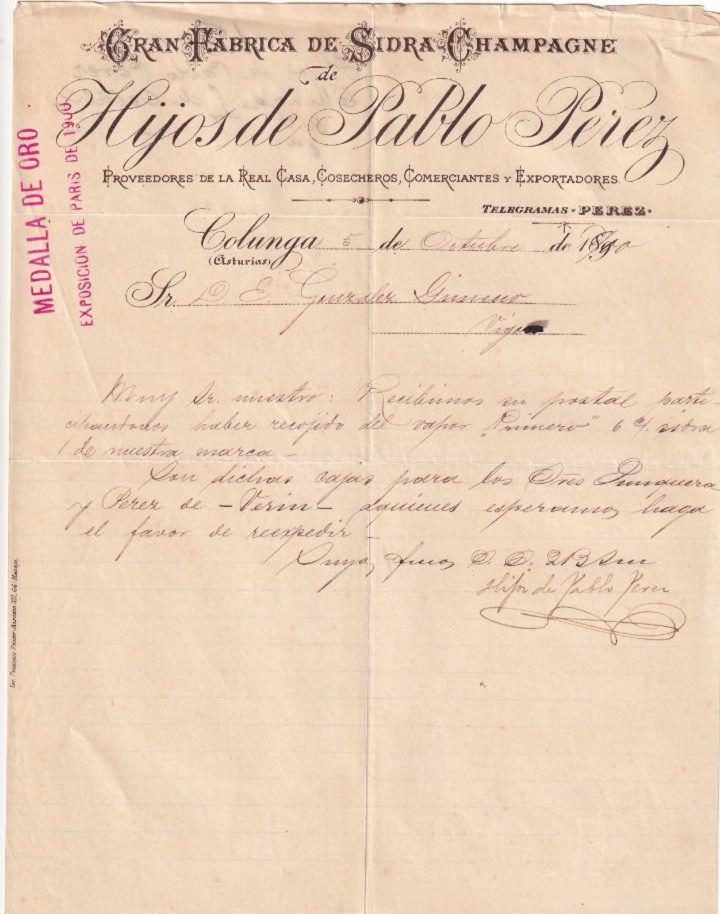 GRAN FÁBRICA DE SIDRA CHAMPAGNE
de
Hijos de Pablo Perez
PROVEEDORES DE LA REAL CASA, COSECHEROS, COMERCIANTES Y EXPORTADORES.
TELEGRAMAS · PEREZ ·
MEDALLA DE ORO
EXPOSICION DE PARIS DE 1900
Colunga 5 de Octubre de 1900
(Asturias)
Sr. D. E. González Gimeno
Vigo
Muy Sr. nuestro: Recibimos su postal parti-
cipandonos haber recojido del vapor "Primero" 6 c/. sidra
de nuestra marca -
Son dichas cajas para los Sres
y Perez de - Verin - aquienes esperamos haga
el favor de reexpedir -
Suyos
Hijos de Pablo Perez